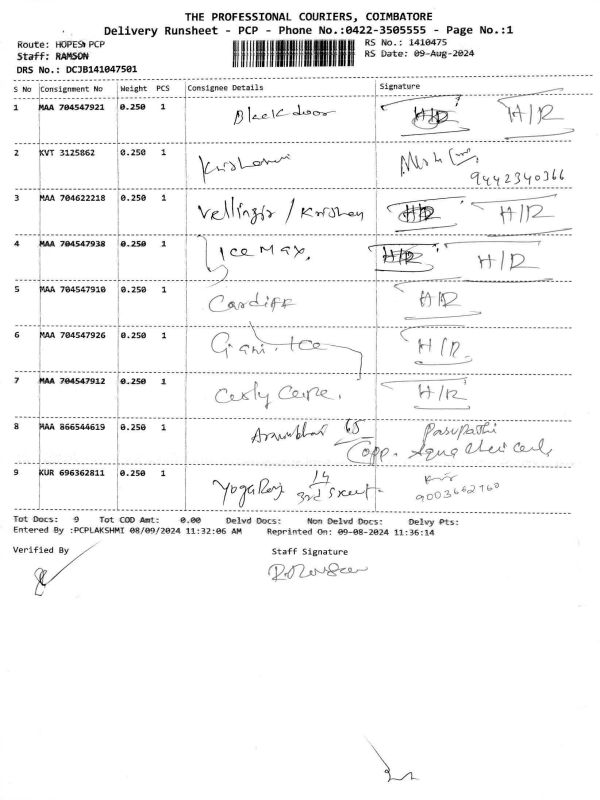 THE PROFESSIONAL COURIERS, COIMBATORE
Delivery Runsheet - PCP - Phone No.:0422-3505555 - Page No.:1
Route: HOPES PCP
RS No.: 1410475
Staff: RAMSON
RS Date: 09-Aug-2024
DRS No.: DCJB141047501
S No Consignment No Weight PCS Consignee Details Signature
1 MAA 704547921 0.250 1 H/R H/R
2 KVT 3125862 0.250 1
9442340366
3 MAA 704622218 0.250 1 Vellingir / Krishan H/R H/R
4 MAA 704547938 0.250 1 Ice Max. H/R H/R
5 MAA 704547910 0.250 1 Cardiff H/R
6 MAA 704547926 0.250 1 Giani. Ice H/R
7 MAA 704547912 0.250 1 H/R
8 MAA 866544619 0.250 1 65 Pasupathi
Opp. Aqua
9 KUR 696362811 0.250 1 Yoga Raj 14
3rd Street
Tot Docs: 9 Tot COD Amt: 0.00 Delvd Docs: Non Delvd Docs: Delvy Pts:
Entered By :PCPLAKSHMI 08/09/2024 11:32:06 AM Reprinted On: 09-08-2024 11:36:14
Verified By Staff Signature